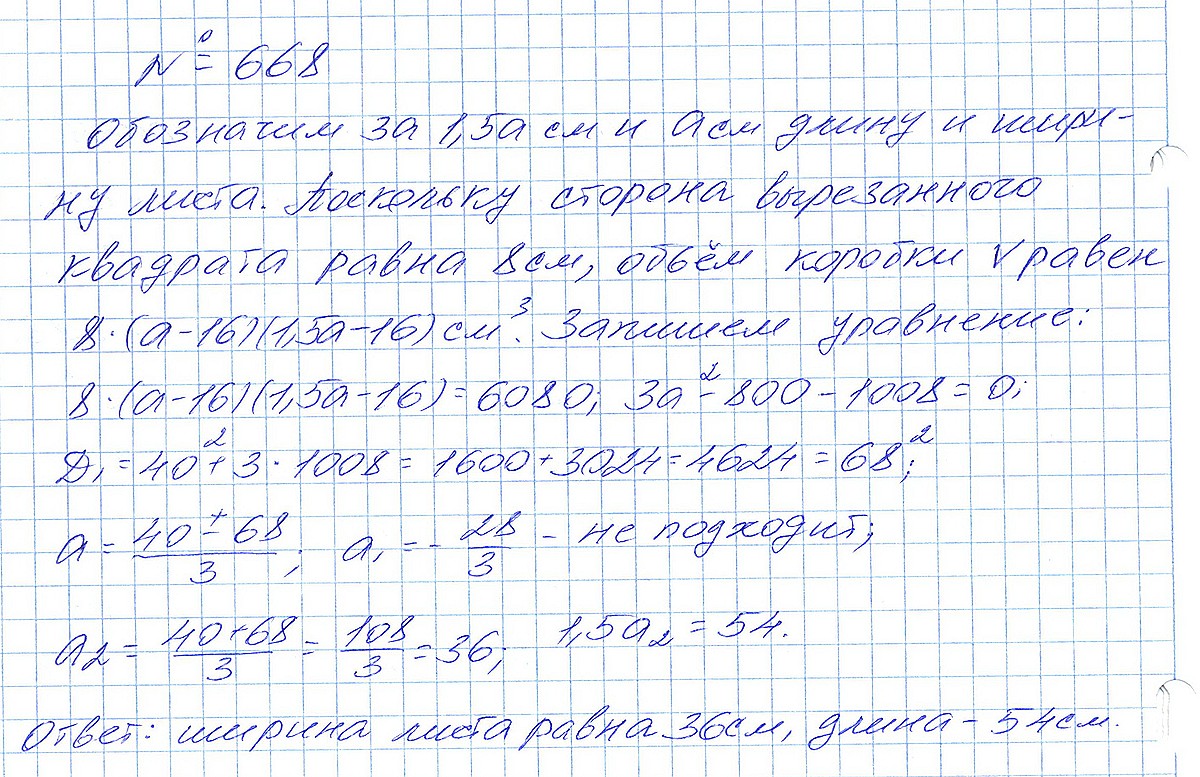 № 668
Обозначим за 1,5а см и а см длину и шири-
ну листа. Поскольку сторона вырезанного
квадрата равна 8 см, объём коробки V равен
8·(а-16)(1,5а-16) см³. Запишем уравнение:
8·(а-16)(1,5а-16)=6080; 3а²-800-1008=0;
D₁=40²+3·1008=1600+3024=4624=68²;
а=(40±68)/3; а₁=-28/3 - не подходит;
а₂=(40+68)/3=108/3=36; 1,5а₂=54.
Ответ: ширина листа равна 36см, длина - 54см.